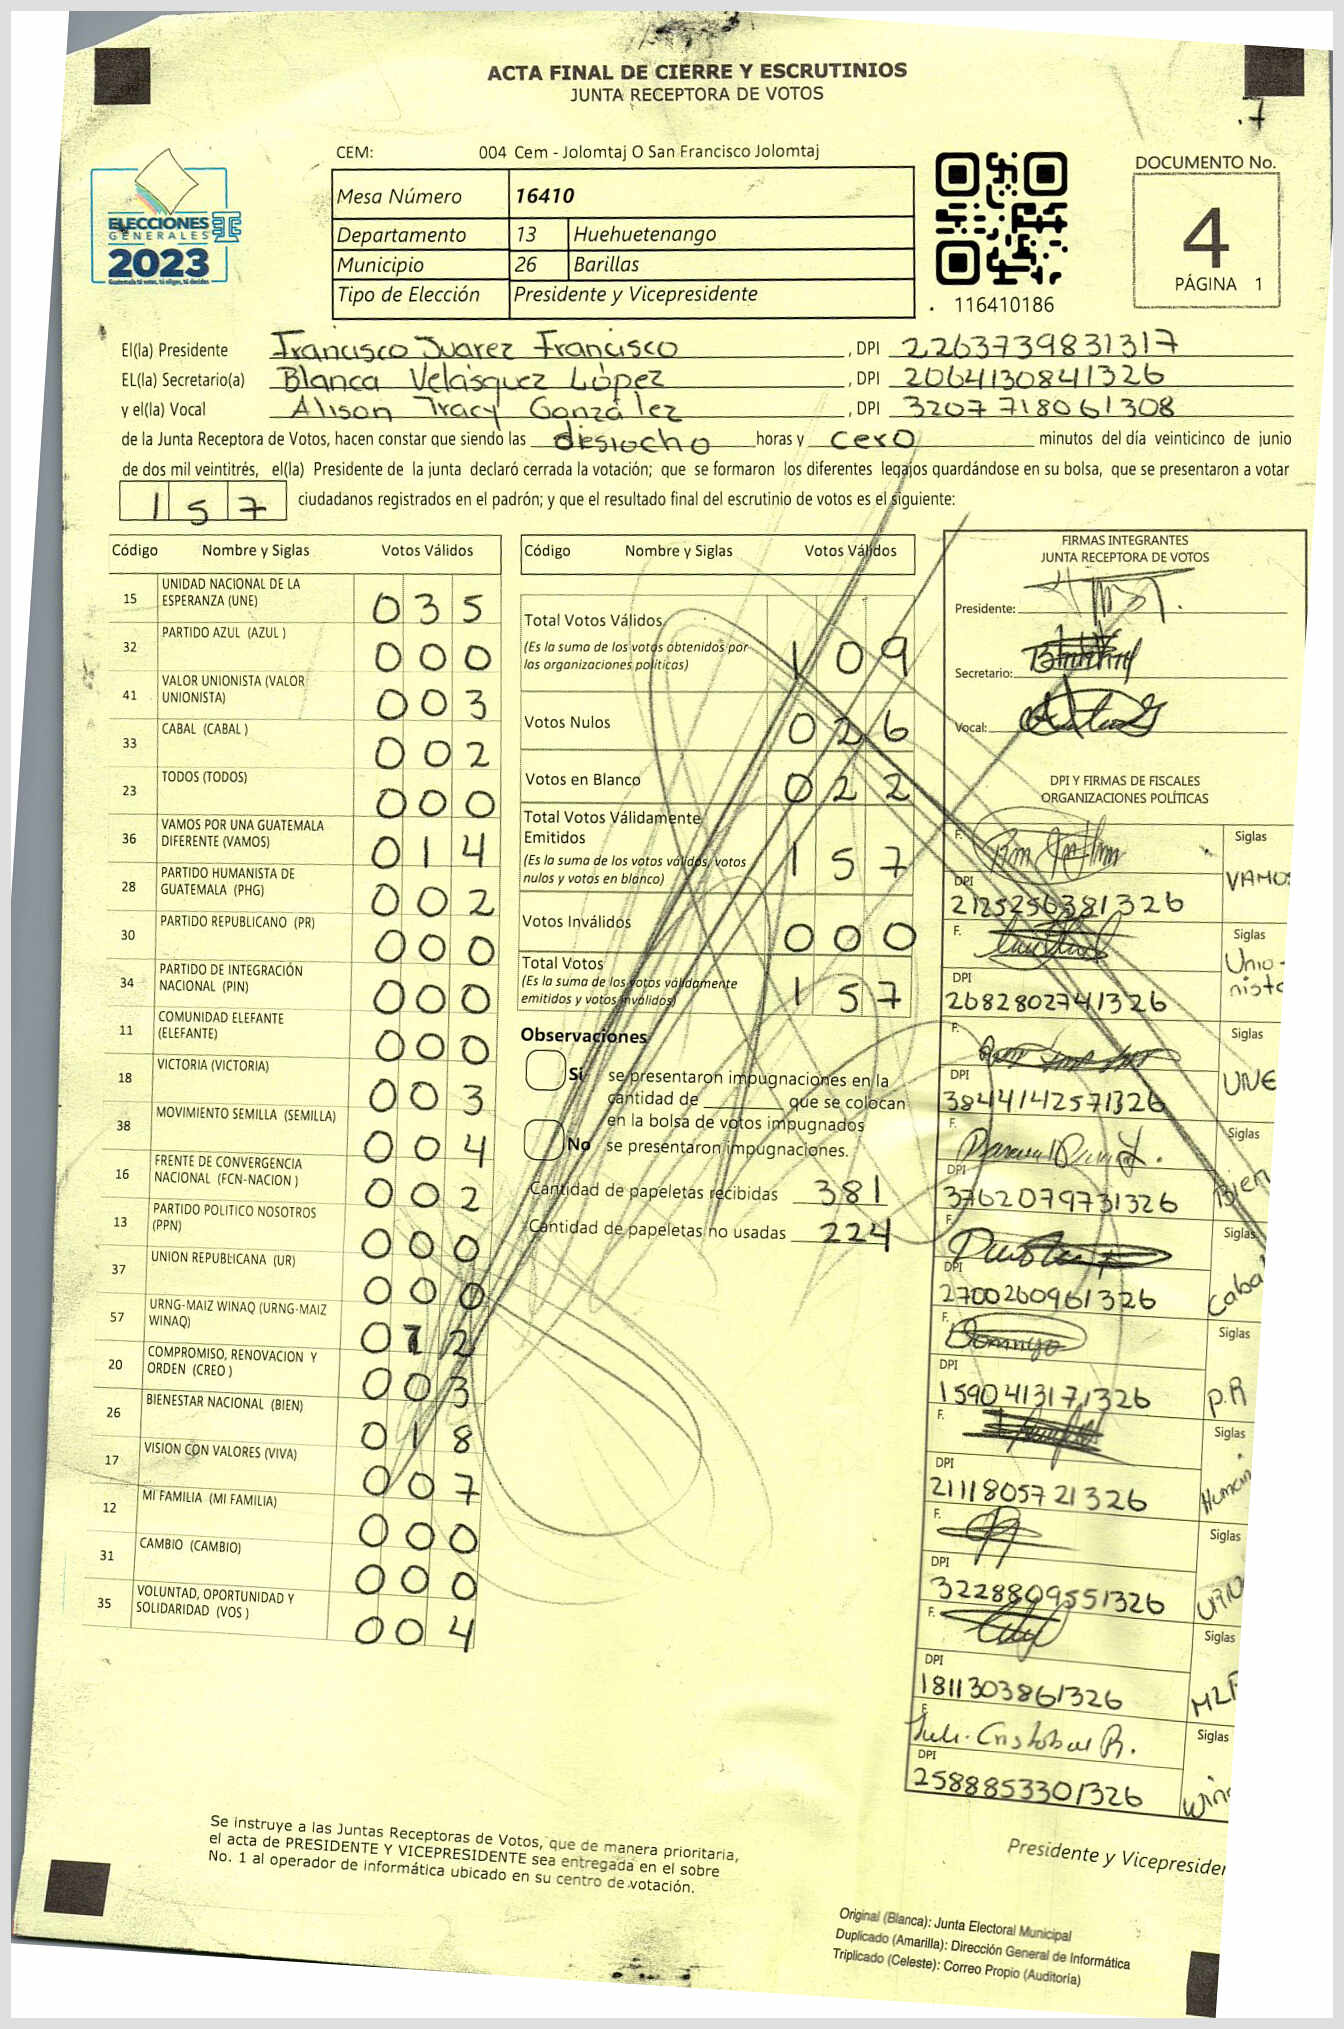 ACTA FINAL DE CIERRE Y ESCRUTINIOS
JUNTA RECEPTORA DE VOTOS
.7
CEM: 004 Cem - Jolomtaj O San Francisco Jolomtaj
ELECCIONES
GENERALES
2023
Mesa Número 16410
Departamento 13 Huehuetenango
Municipio 26 Barillas
Tipo de Elección Presidente y Vicepresidente
116410186
DOCUMENTO No.
4
PÁGINA 1
El(la) Presidente Francisco Juarez Francisco , DPI 2263739831317
EL(la) Secretario(a) Blanca Velásquez López , DPI 2064130841326
y el(la) Vocal Alison Tracy Gonzalez , DPI 3207718061308
de la Junta Receptora de Votos, hacen constar que siendo las desiocho horas y cero minutos del día veinticinco de junio
de dos mil veintitrés, el(la) Presidente de la junta declaró cerrada la votación; que se formaron los diferentes legajos guardándose en su bolsa, que se presentaron a votar
157 ciudadanos registrados en el padrón; y que el resultado final del escrutinio de votos es el siguiente:
Código Nombre y Siglas Votos Válidos
15 UNIDAD NACIONAL DE LA ESPERANZA (UNE) 035
32 PARTIDO AZUL (AZUL ) 000
41 VALOR UNIONISTA (VALOR UNIONISTA) 003
33 CABAL (CABAL ) 002
23 TODOS (TODOS) 000
36 VAMOS POR UNA GUATEMALA DIFERENTE (VAMOS) 014
28 PARTIDO HUMANISTA DE GUATEMALA (PHG) 002
30 PARTIDO REPUBLICANO (PR) 000
34 PARTIDO DE INTEGRACIÓN NACIONAL (PIN) 000
11 COMUNIDAD ELEFANTE (ELEFANTE) 000
18 VICTORIA (VICTORIA) 003
38 MOVIMIENTO SEMILLA (SEMILLA) 004
16 FRENTE DE CONVERGENCIA NACIONAL (FCN-NACION ) 002
13 PARTIDO POLITICO NOSOTROS (PPN) 000
37 UNION REPUBLICANA (UR) 000
57 URNG-MAIZ WINAQ (URNG-MAIZ WINAQ) 012
20 COMPROMISO, RENOVACION Y ORDEN (CREO ) 003
26 BIENESTAR NACIONAL (BIEN) 018
17 VISION CON VALORES (VIVA) 007
12 MI FAMILIA (MI FAMILIA) 000
31 CAMBIO (CAMBIO) 000
35 VOLUNTAD, OPORTUNIDAD Y SOLIDARIDAD (VOS ) 004
Código Nombre y Siglas Votos Válidos
Total Votos Válidos 109
(Es la suma de los votos obtenidos por
las organizaciones políticas)
Votos Nulos 026
Votos en Blanco 022
Total Votos Válidamente
Emitidos 157
(Es la suma de los votos válidos, votos
nulos y votos en blanco)
Votos Inválidos 000
Total Votos 157
(Es la suma de los votos válidamente
emitidos y votos inválidos)
Observaciones
Si se presentaron impugnaciones en la
cantidad de ________ que se colocan
en la bolsa de votos impugnados
No se presentaron impugnaciones.
Cantidad de papeletas recibidas 381
Cantidad de papeletas no usadas 224
FIRMAS INTEGRANTES
JUNTA RECEPTORA DE VOTOS
Presidente:
Secretario:
Vocal:
DPI Y FIRMAS DE FISCALES
ORGANIZACIONES POLÍTICAS
F. Siglas VAMOS
DPI 2125256381326
F. Siglas Unionista
DPI 2682802741326
F. Siglas UNE
DPI 3844142571326
F. Siglas Bien
DPI 3762079731326
F. Siglas Cabal
DPI 2700260961326
F. Domingo Siglas P.R
DPI 1590413171326
F. Siglas
DPI 2111805721326
F. Siglas
DPI 3228809551326
F. Siglas
DPI 1811303861326
F. Cristobal R. Siglas
DPI 2588853301326
Se instruye a las Juntas Receptoras de Votos, que de manera prioritaria,
el acta de PRESIDENTE Y VICEPRESIDENTE sea entregada en el sobre
No. 1 al operador de informática ubicado en su centro de votación.
Presidente y Vicepresiden
Original (Blanca): Junta Electoral Municipal
Duplicado (Amarilla): Dirección General de Informática
Triplicado (Celeste): Correo Propio (Auditoría)